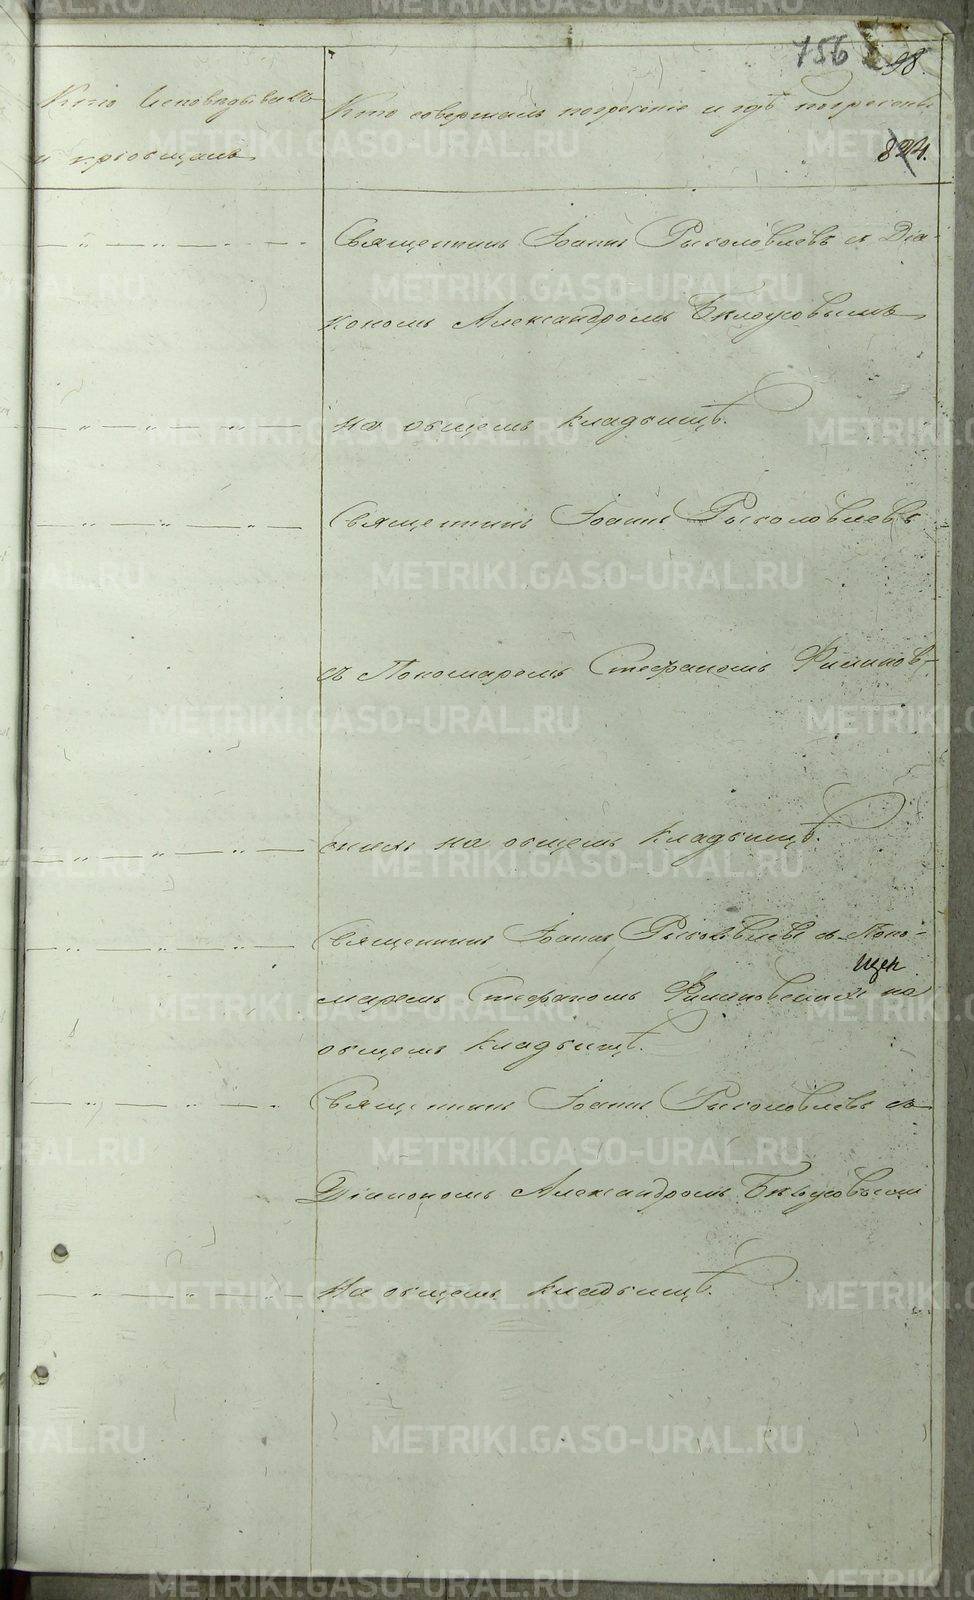 156 98.
Кто Исповѣдывалъ
и прiобщалъ
Кто совершалъ погребенiе и гдѣ погребены
824.
Священникъ Iоаннъ Рыболовлевъ съ Дiа-
кономъ Александромъ Бѣлоусовымъ
на общемъ кладбищѣ.
Священникъ Iоаннъ Рыболовлевъ
съ Пономаремъ Стефаномъ Филипов-
скимъ на общемъ кладбищѣ.
Священникъ Iоаннъ Рыболовлевъ съ Поно-
маремъ Стефаномъ на
общемъ кладбищѣ.
Священникъ Iоаннъ Рыболовлевъ съ
Дiакономъ Александромъ Бѣлоусовымъ
На общемъ кладбищѣ.
METRIKI.GASO-URAL.RU